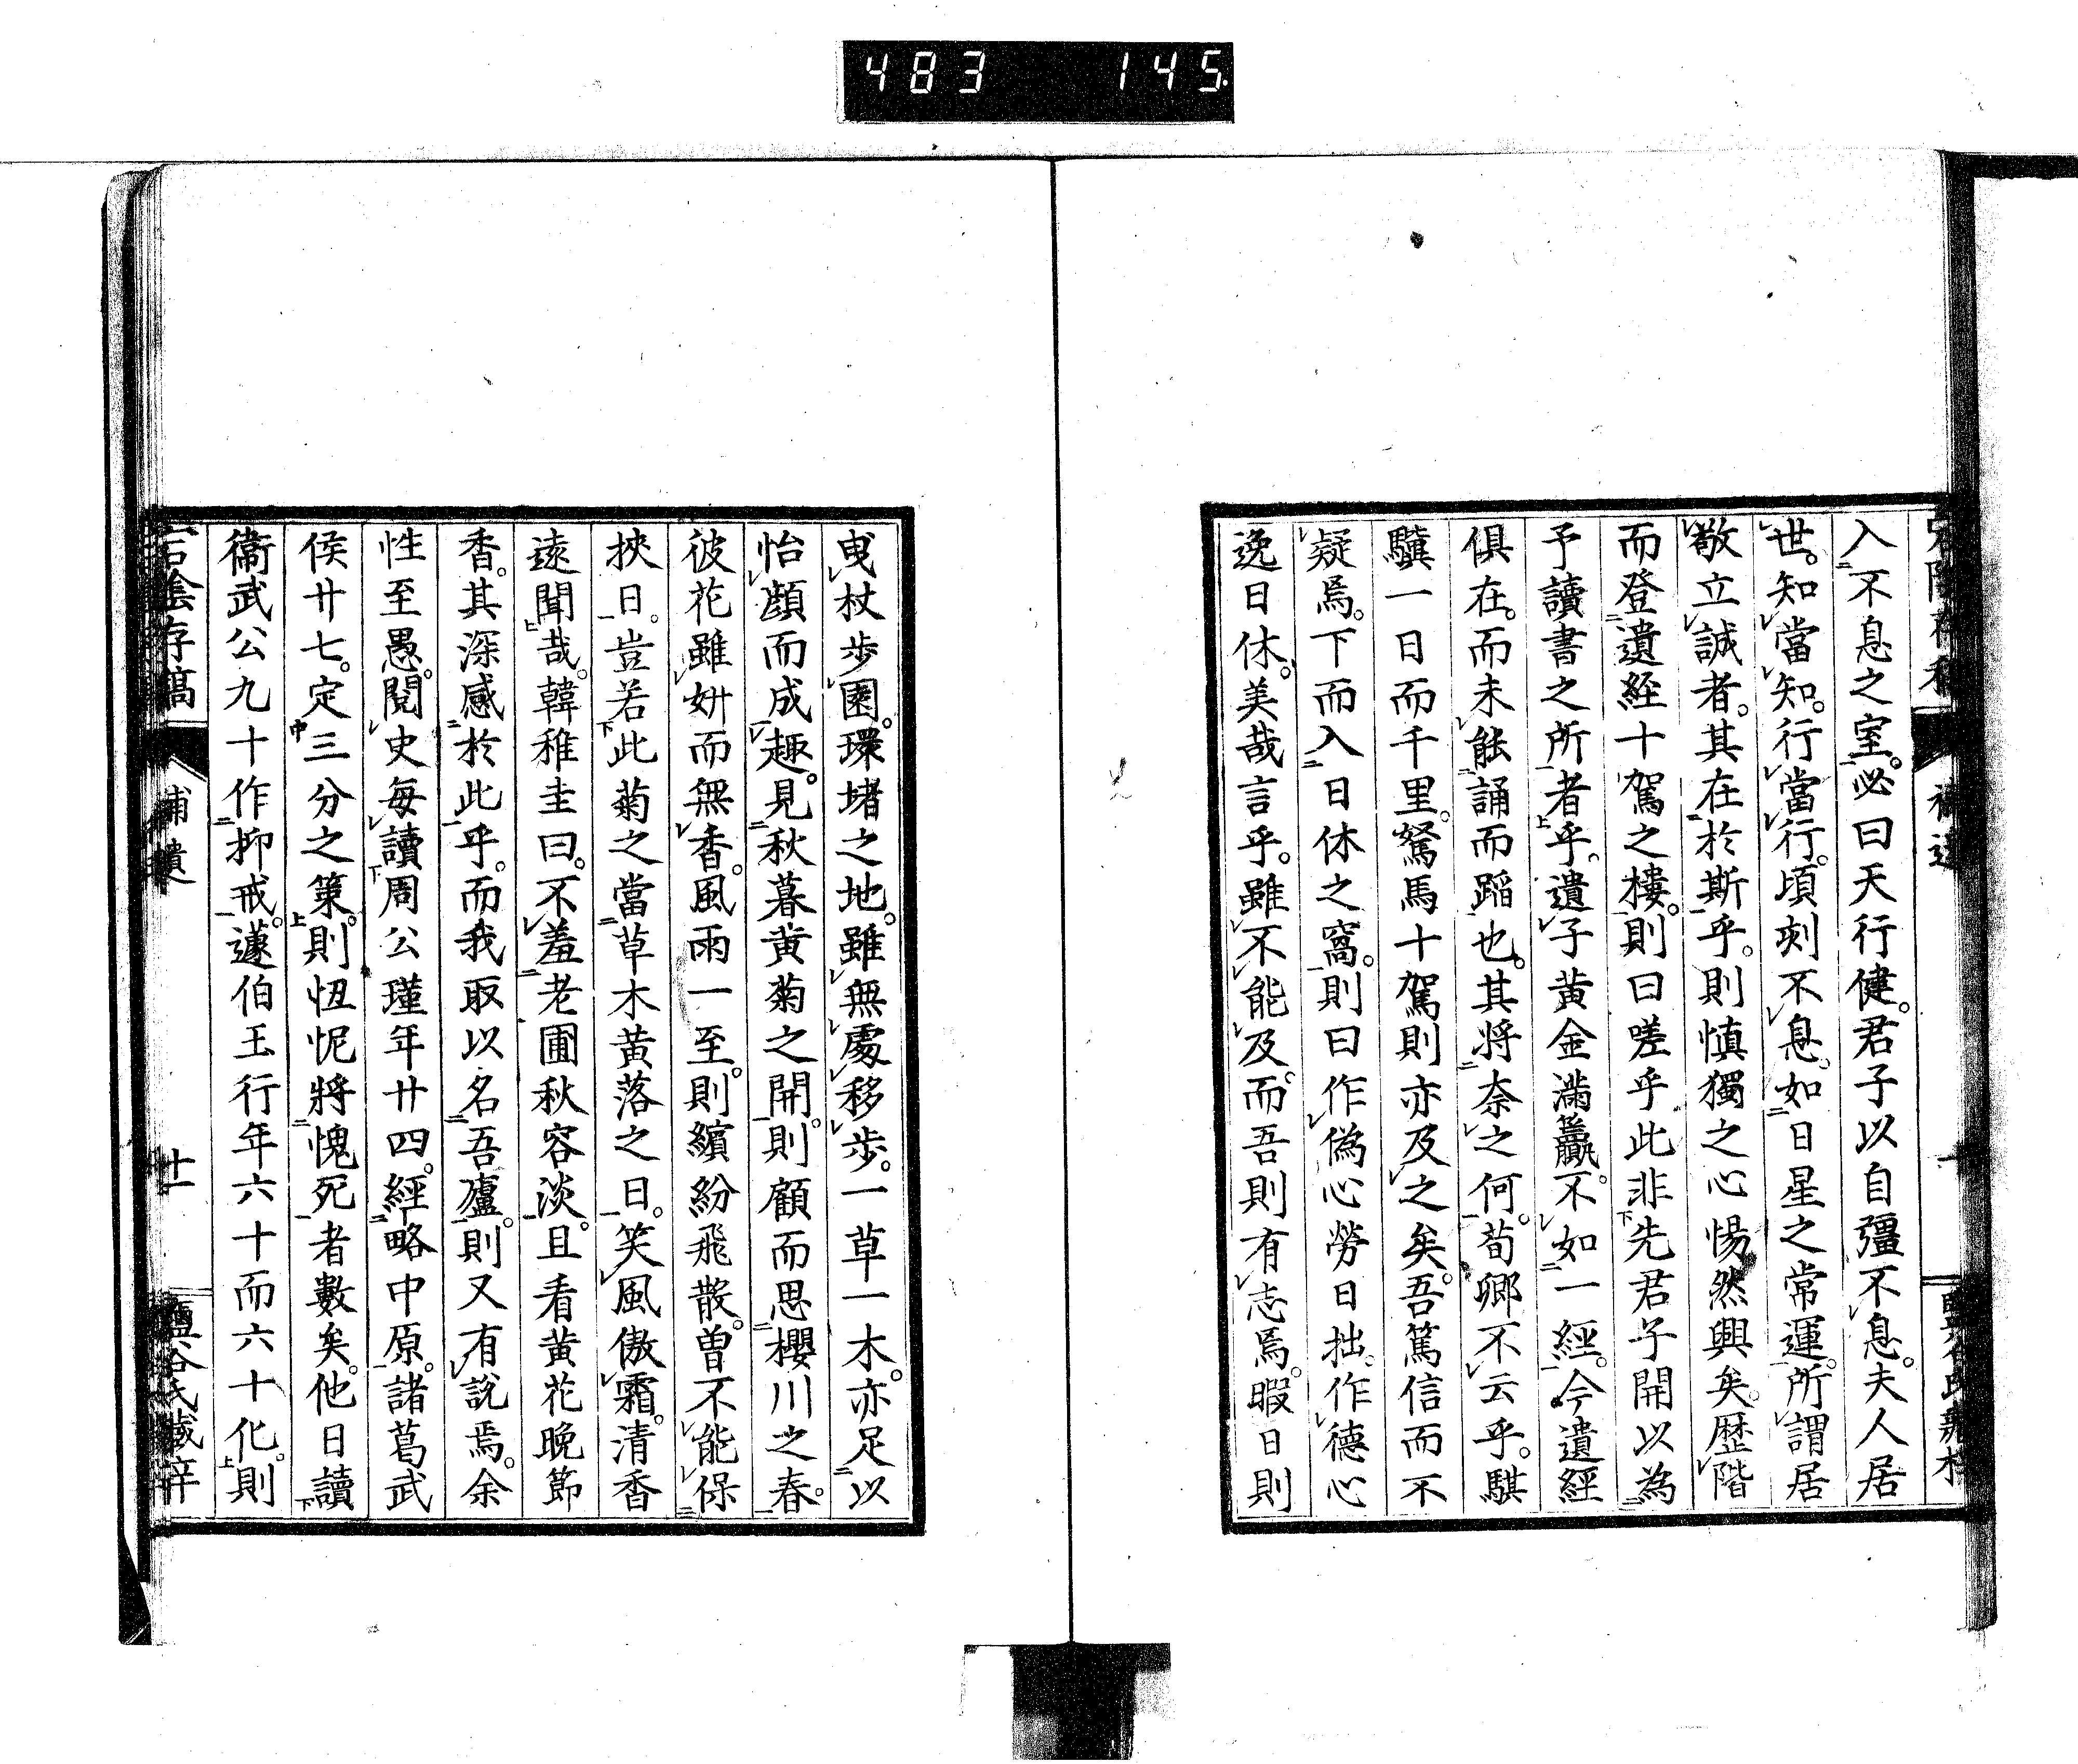 483 145
入不息之室。必曰天行健。君子以自彊不息。夫人居
世。知當知。行當行。頃刻不息。如日星之常運。所謂居
敬立誠者。其在於斯乎。則慎獨之心惕然興矣。歷階
而登遺經十駕之樓。則曰嗟乎此非先君子開以為
予讀書之所者乎。遺子黃金滿籯。不如一經。今遺經
俱在。而未能誦而蹈也。其將奈之何。荀卿不云乎。騏
驥一日而千里。駑馬十駕則亦及之矣。吾篤信而不
疑焉。下而入日休之窩。則曰作偽心勞日拙。作德心
逸日休。美哉言乎。雖不能及。而吾則有志焉。暇日則
曳杖步園。環堵之地。雖無處移步。一草一木。亦足以
怡顏而成趣。見秋暮黃菊之開。則顧而思櫻川之春。
彼花雖妍而無香。風雨一至。則繽紛飛散。曾不能保
挾日。豈若此菊之當草木黃落之日。笑風傲霜。清香
遠聞哉。韓稚圭曰。不羞老圃秋容淡。且看黃花晚節
香。其深感於此乎。而我取以名吾廬。則又有說焉。余
性至愚。閱史每讀周公瑾年廿四。經略中原。諸葛武
侯廿七。定三分之策。則忸怩將愧死者數矣。他日讀
衞武公九十作抑戒。蘧伯玉行年六十而六十化。則
宕陰存稿 補遺 十一 鹽谷氏藏梓